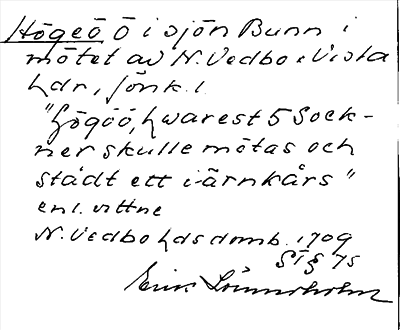 Högeö Ö i sjön Bunn i
mötet av N. Vedbo o Vista
hdr, Jönk. l.
"högöö, hwarest 5 Sock-
ner skulle mötas och
stådt ett i-ärnkårs"
enl. vittne
N. Vedbo hds domb. 1709
§ 75
Erik